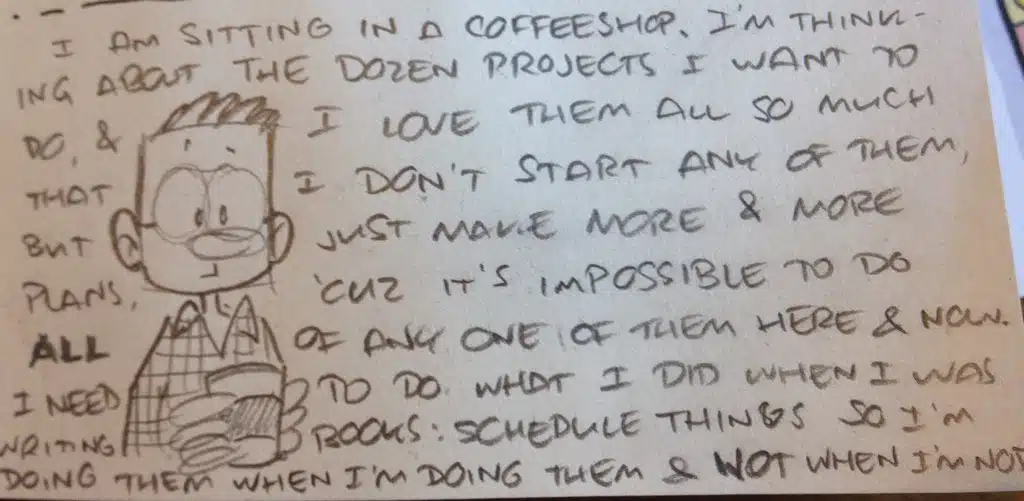 I AM SITTING IN A COFFEESHOP. I'M THINK-
ING ABOUT THE DOZEN PROJECTS I WANT TO
DO, & I LOVE THEM ALL SO MUCH
THAT I DON'T START ANY OF THEM,
BUT JUST MAKE MORE & MORE
PLANS, 'CUZ IT'S IMPOSSIBLE TO DO
ALL OF ANY ONE OF THEM HERE & NOW.
I NEED TO DO WHAT I DID WHEN I WAS
WRITING BOOKS: SCHEDULE THINGS SO I'M
DOING THEM WHEN I'M DOING THEM & NOT WHEN I'M NOT